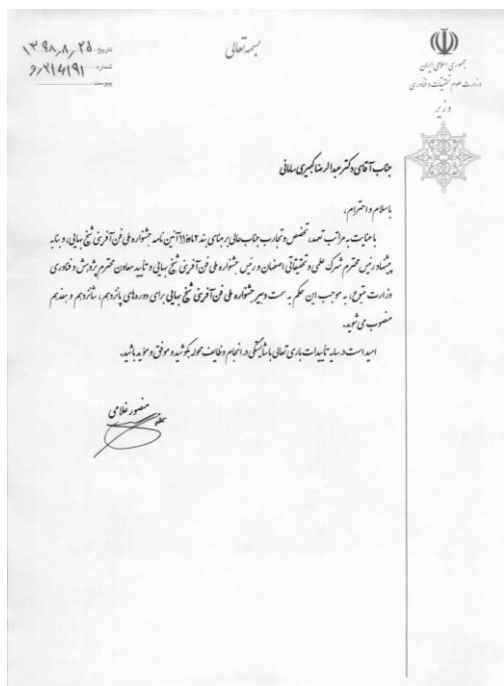 بسمه تعالی
جمهوری اسلامی ایران
وزارت علوم تحقیقات و فناوری
وزیر
تاریخ ۱۳۹۸٫۸٫۲۵
شماره ۲۱۴۱۹۱/و
پیوست
جناب آقای دکتر عبدالرضا کبیری سامانی
با سلام و احترام،
با عنایت به مراتب تعهد، تخصص و تجارب جناب‌عالی بر مبنای بند ۲ ماده ۱۱ آئین نامه جشنواره ملی فن آفرینی شیخ بهایی، و بنا به
پیشنهاد رئیس محترم شهرک علمی و تحقیقاتی اصفهان و رئیس جشنواره ملی فن آفرینی شیخ بهایی و تأیید معاون محترم پژوهش و فناوری
وزارت متبوع، به موجب این حکم به سمت دبیر جشنواره ملی فن آفرینی شیخ بهایی برای دوره های پانزدهم، شانزدهم و هفدهم
منصوب می شوید.
امید است در سایه تأییدات باری تعالی با شایستگی در انجام وظایف محوله بکوشید و موفق و مؤید باشید.
منصور غلامی